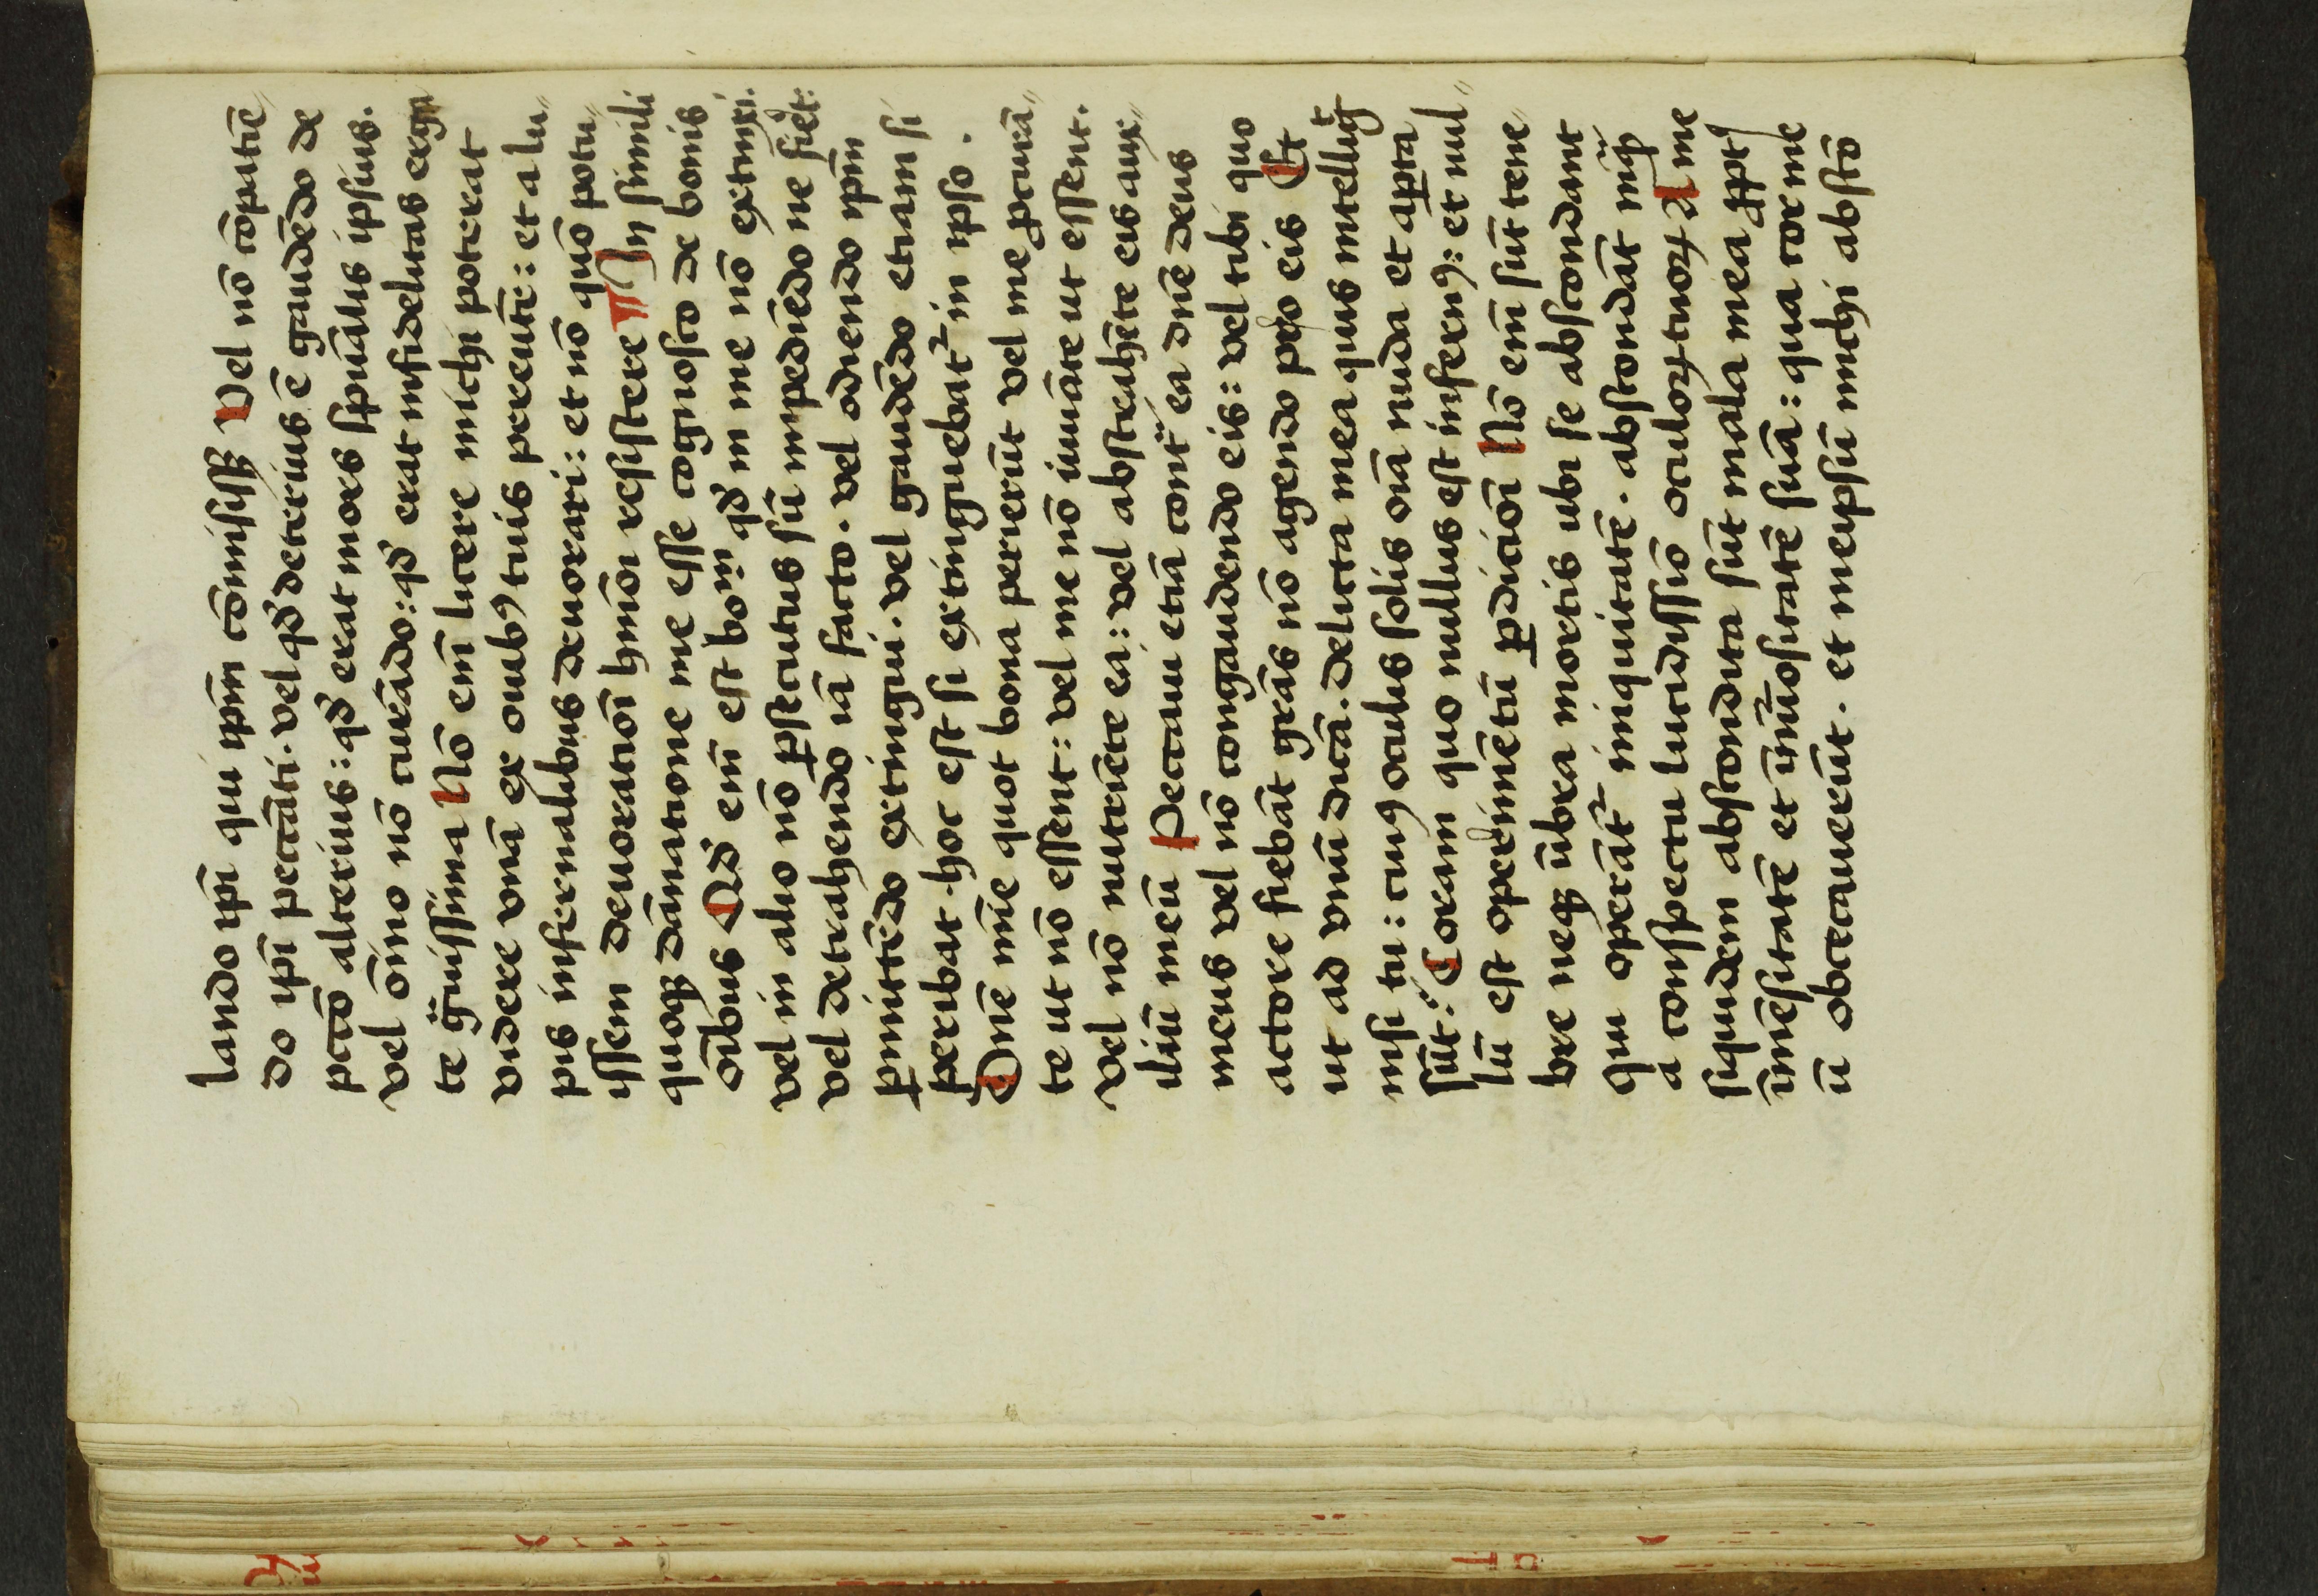 lando ip̄i qui ip̄m cōmisissꝫ Vel nō cōpatiē⸗
do ip̄i peccāti. vel qd̓ deterius ē gaudēdo de
pctō alterius: qd̓ erat mors sp̄uālis ipsius.
vel ōīno nō curādo: qd̓ erat infidelitas erga
te g̈uissima Nō em̄ licere michi poterat
videre vnā ex ouibꝰ tuis pereūtē: et a lu⸗
pis infernalibus deuorari: et nō quō potu⸗
issem deuoratiōī hm̄ōi resistere ¶ In simili
quoqꝫ dāmatione me esse cognosco de bonis
oībus Qd̓ em̄ est bo..m qd̓ in me nō extinxi.
vel in alio nō ꝑsecutus sū impediēdo ne fiet:
vel detrahendo iā facto. vel odiendo ip̄m
ꝑmittēdo extingui. vel gaudēdo etiam si
peribat. hoc est si extinguebat᷑ in ipso.
Dn̄e mīe quot bona perierūt vel me ꝓcurā⸗
te ut nō essent: vel me nō iuuāte ut essent.
vel nō nutriēte ea: vel abstrahēte eis aux⸗
iliū meū Peccaui etiā cont̃ ea dn̄e deus
meus vel nō congaudendo eis: vel tibi quo
actore fiebāt grās nō agendo pro eis Et
ut ad vnū dicā. delicta mea quis intelligt
nisi tu: cuiꝰ oculis solis oīā nuda et aꝑta
sūt: Coram quo nullus est infernꝰ: et nul⸗
lū est operimētū ꝑdiciōī Nō em̄ sūt tene
bre neqꝫ ūbra mortis ubi se abscondant
qui operāt᷑ iniquitatē. abscondāt inqͣ
a conspectu lucidissīo oculoꝝ tuoꝝ A me
siquidem abscondita sūt mala mea ꝓpt̓
īmēsitatē et īnūositatē suā: quia cor me
ū obcecauerūt. et meipsū michi abscō